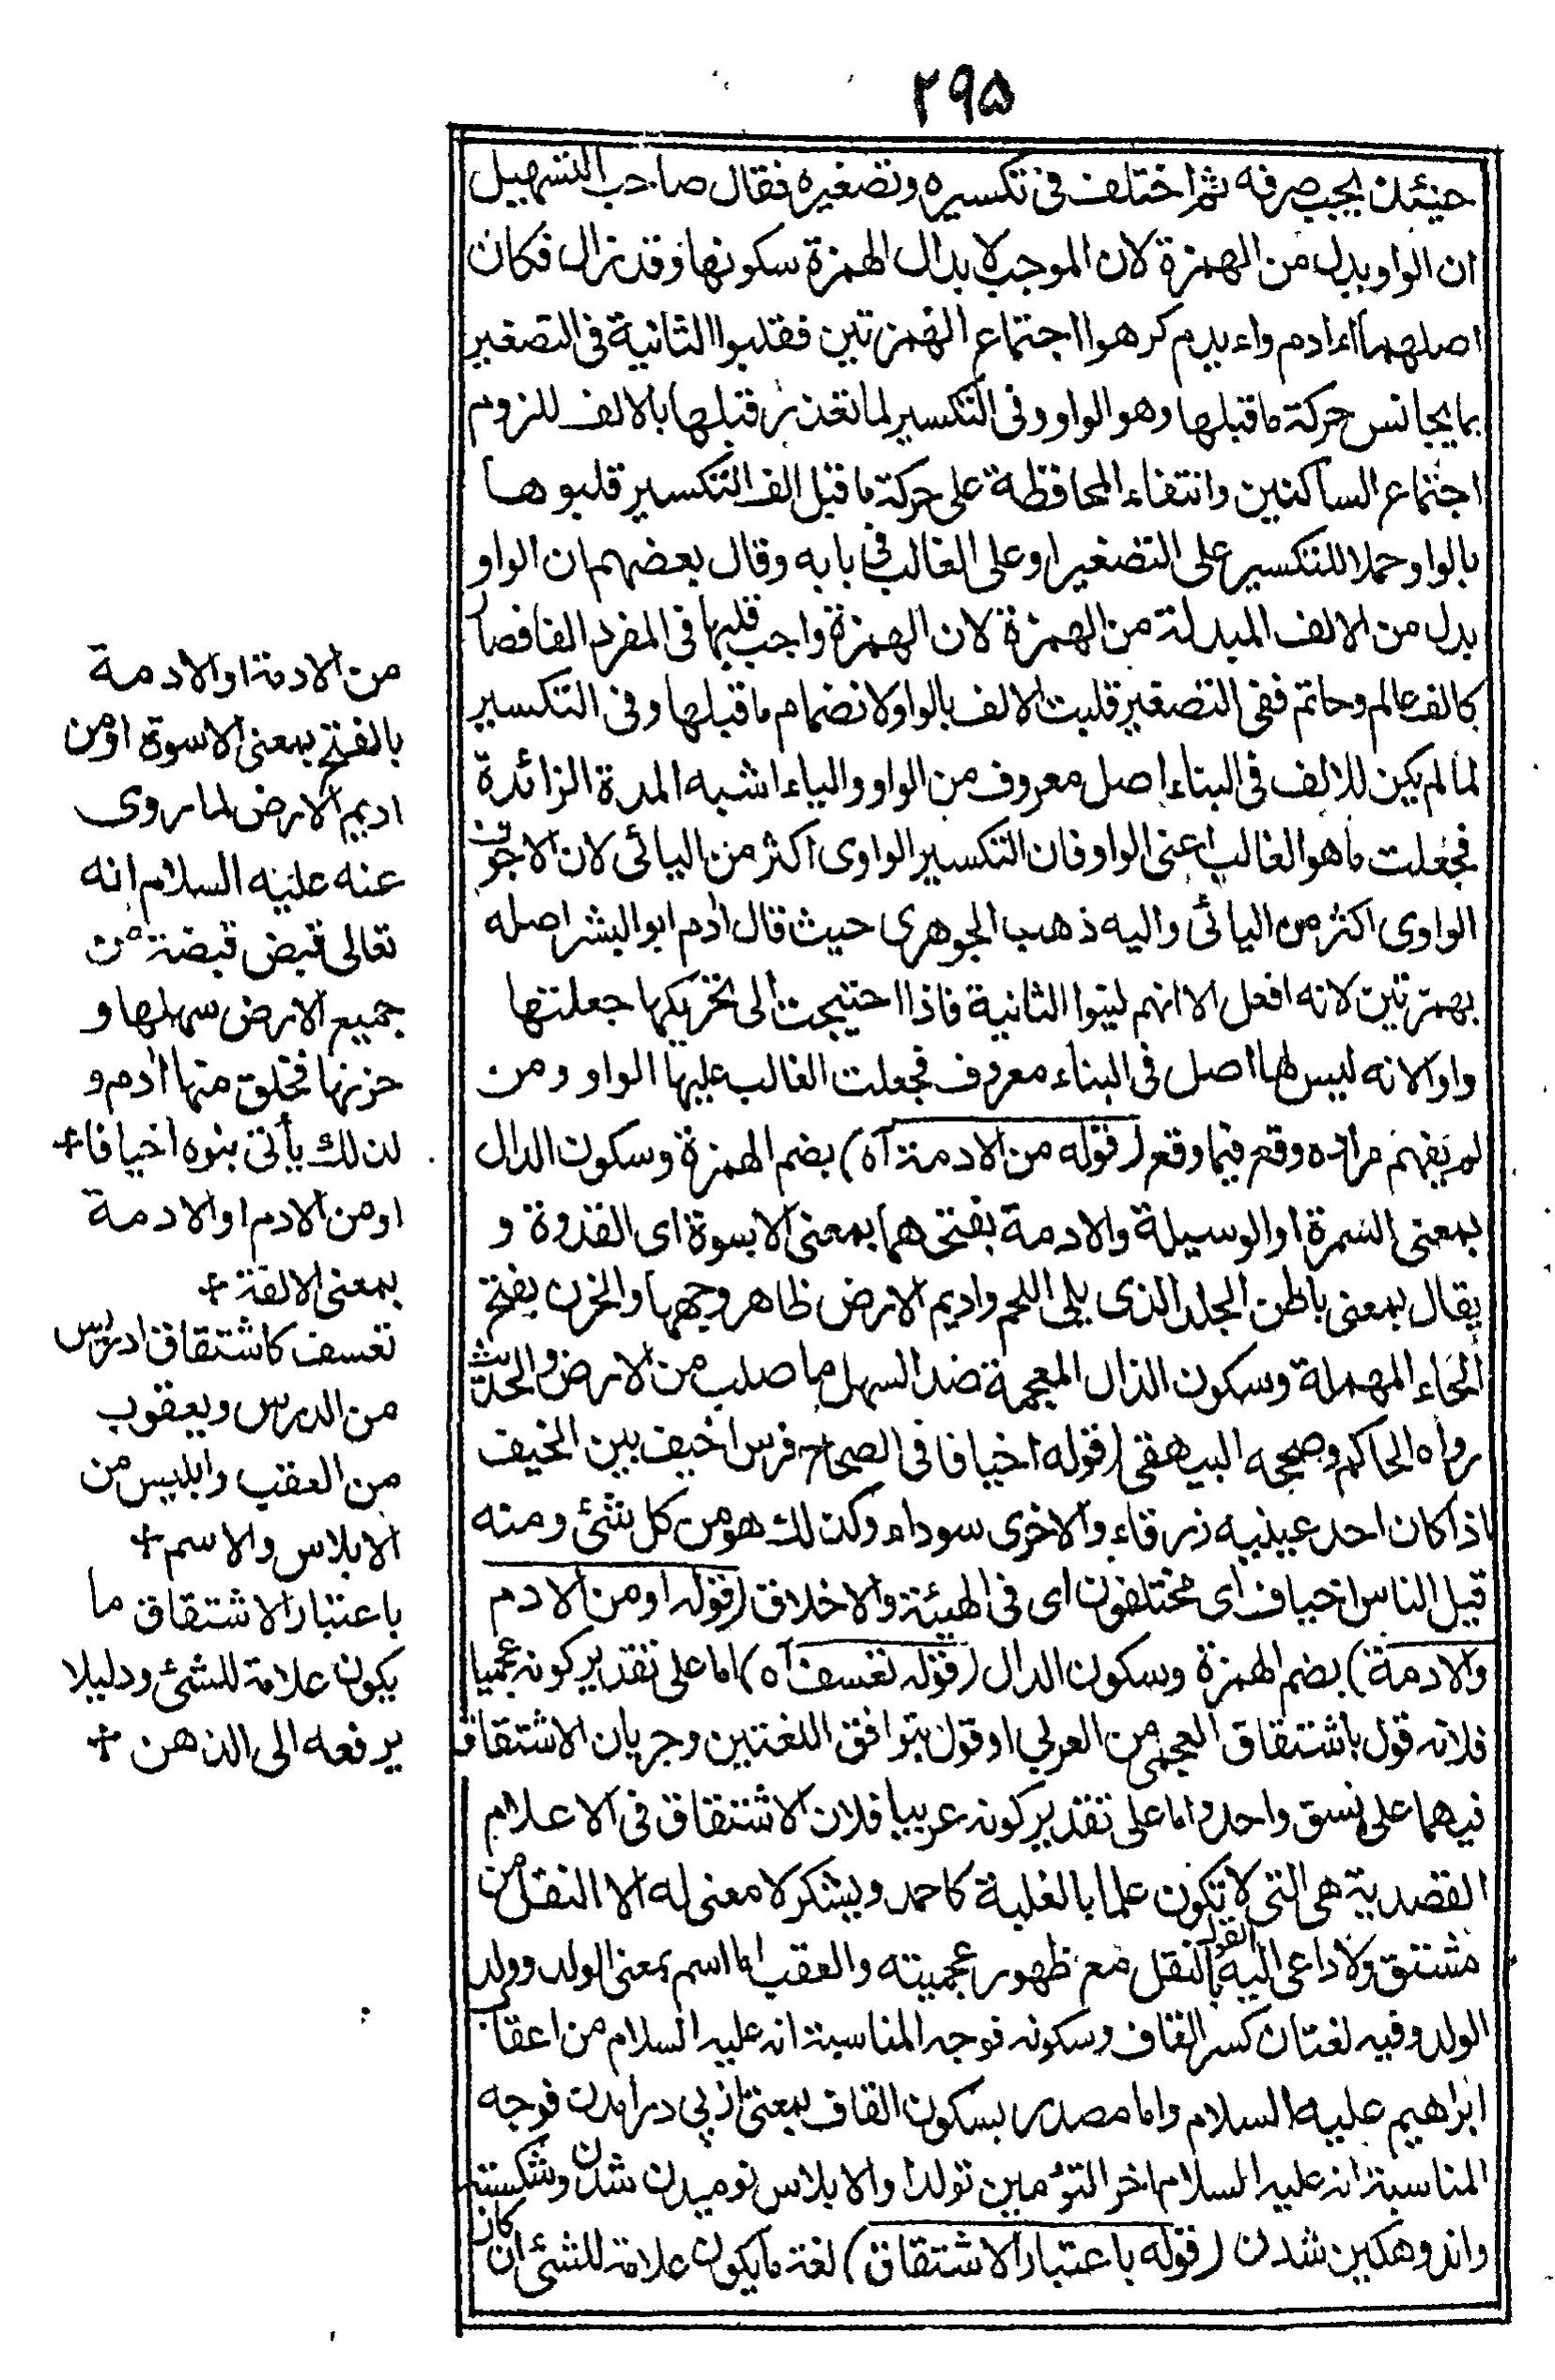 ٢٩٥
حينئذ يجب صرفه ثم اختلف فى تكسيره وتصغيره فقال صاحب التسهيل
ان الواو بدل من الهمزة لان الموجب لابدال الهمزة سكونها وقد زال فكان
اصلهما اءادم واءيدم كرهوا اجتماع الهمزتين فقلبوا الثانية فى التصغير
بما يجانس حركة ماقبلها وهو الواو وفى التكسير لما تعذر قبلها بالالف للزوم
اجتماع الساكنين وانتفاء المحافظة على حركة ماقبل الف التكسير قلبوها
بالواو حملا للتكسير على التصغير او على الغالب فى بابه وقال بعضهم ان الواو
بدل من الالف المبدلة من الهمزة لان الهمزة واجب قلبها فى المفرد الفا فصار
كالف عالم وحاتم ففى التصغير قلبت الالف بالواو لانضمام ماقبلها وفى التكسير
لما لم يكن للالف فى البناء اصل معروف من الواو والياء اشبه المدة الزائدة
فجعلت ما هو الغالب اعنى الواو فان التكسير الواوى اكثر من اليائى لان الاجوف
الواوى اكثر من اليائى واليه ذهب الجوهرى حيث قال ادم ابو البشر اصله
بهمزتين لانه افعل الا انهم لينوا الثانية فاذا احتيجت الى تحريكها جعلتها
واوا لانه ليس لها اصل فى البناء معروف فجعلت الغالب عليها الواو ومن
لم يفهم مراده وقع فيما وقع (قوله من الادمة آه) بضم الهمزة وسكون الدال
بمعنى السمرة او الوسيلة والادمة بفتحهما بمعنى الاسوة اى القدوة و
يقال بمعنى باطن الجلد الذى يلى اللحم واديم الارض ظاهر وجهها والحزن بفتح
الحاء المهملة وسكون الذال المعجمة ضد السهل ما صلب من الارض والحديث
رواه الحاكم وصححه البيهقى (قوله اخيافا فى الصحاح فرس اخيف بين الخيف
اذا كان احد عينيه زرقاء والاخرى سوداء وكذلك هو من كل شئ ومنه
قيل الناس اخياف اى مختلفون اى فى الهيئة والاخلاق (قوله او من الادم
والادمة) بضم الهمزة وسكون الدال (قوله تعسف آه) اما على تقدير كونه عجميا
فلانه قول باشتقاق العجمى من العربى او قول بتوافق اللغتين وجريان الاشتقاق
فيهما على نسق واحد واما على تقدير كونه عربيا فلان الاشتقاق فى الاعلام
القصدية هى التى لا تكون علما بالغلبة كاحمد ويشكر لا معنى له الا النقل من
مشتق ولا داعى اليه القول بالنقل مع ظهور عجميته والعقب اما اسم بمعنى الولد وولد
الولد وفيه لغتان كسر القاف وسكونه فوجه المناسبة انه عليه السلام من اعقاب
ابراهيم عليه السلام واما مصدر بسكون القاف بمعنى از پى درامدن فوجه
المناسبة انه عليه السلام اخر التوءمين تولدا والابلاس نوميدن شدن وشكسته
واندوهكين شدن (قوله باعتبار الاشتقاق) لغة ما يكون علامة للشئ ان كان
من الادمة او الادمة
بالفتح بمعنى الاسوة او من
اديم الارض لما روى
عنه عليه السلام انه
تعالى قبض قبضة من
جميع الارض سهلها و
حزنها فخلق منها ادم و
لذلك يأتى بنوه اخيافا +
او من الادم او الادمة
بمعنى الالفة +
تعسف كاشتقاق ادريس
من الدرس ويعقوب
من العقب وابليس من
الابلاس والاسم +
باعتبار الاشتقاق ما
يكون علامة للشئ ودليلا
يرفعه الى الذهن +